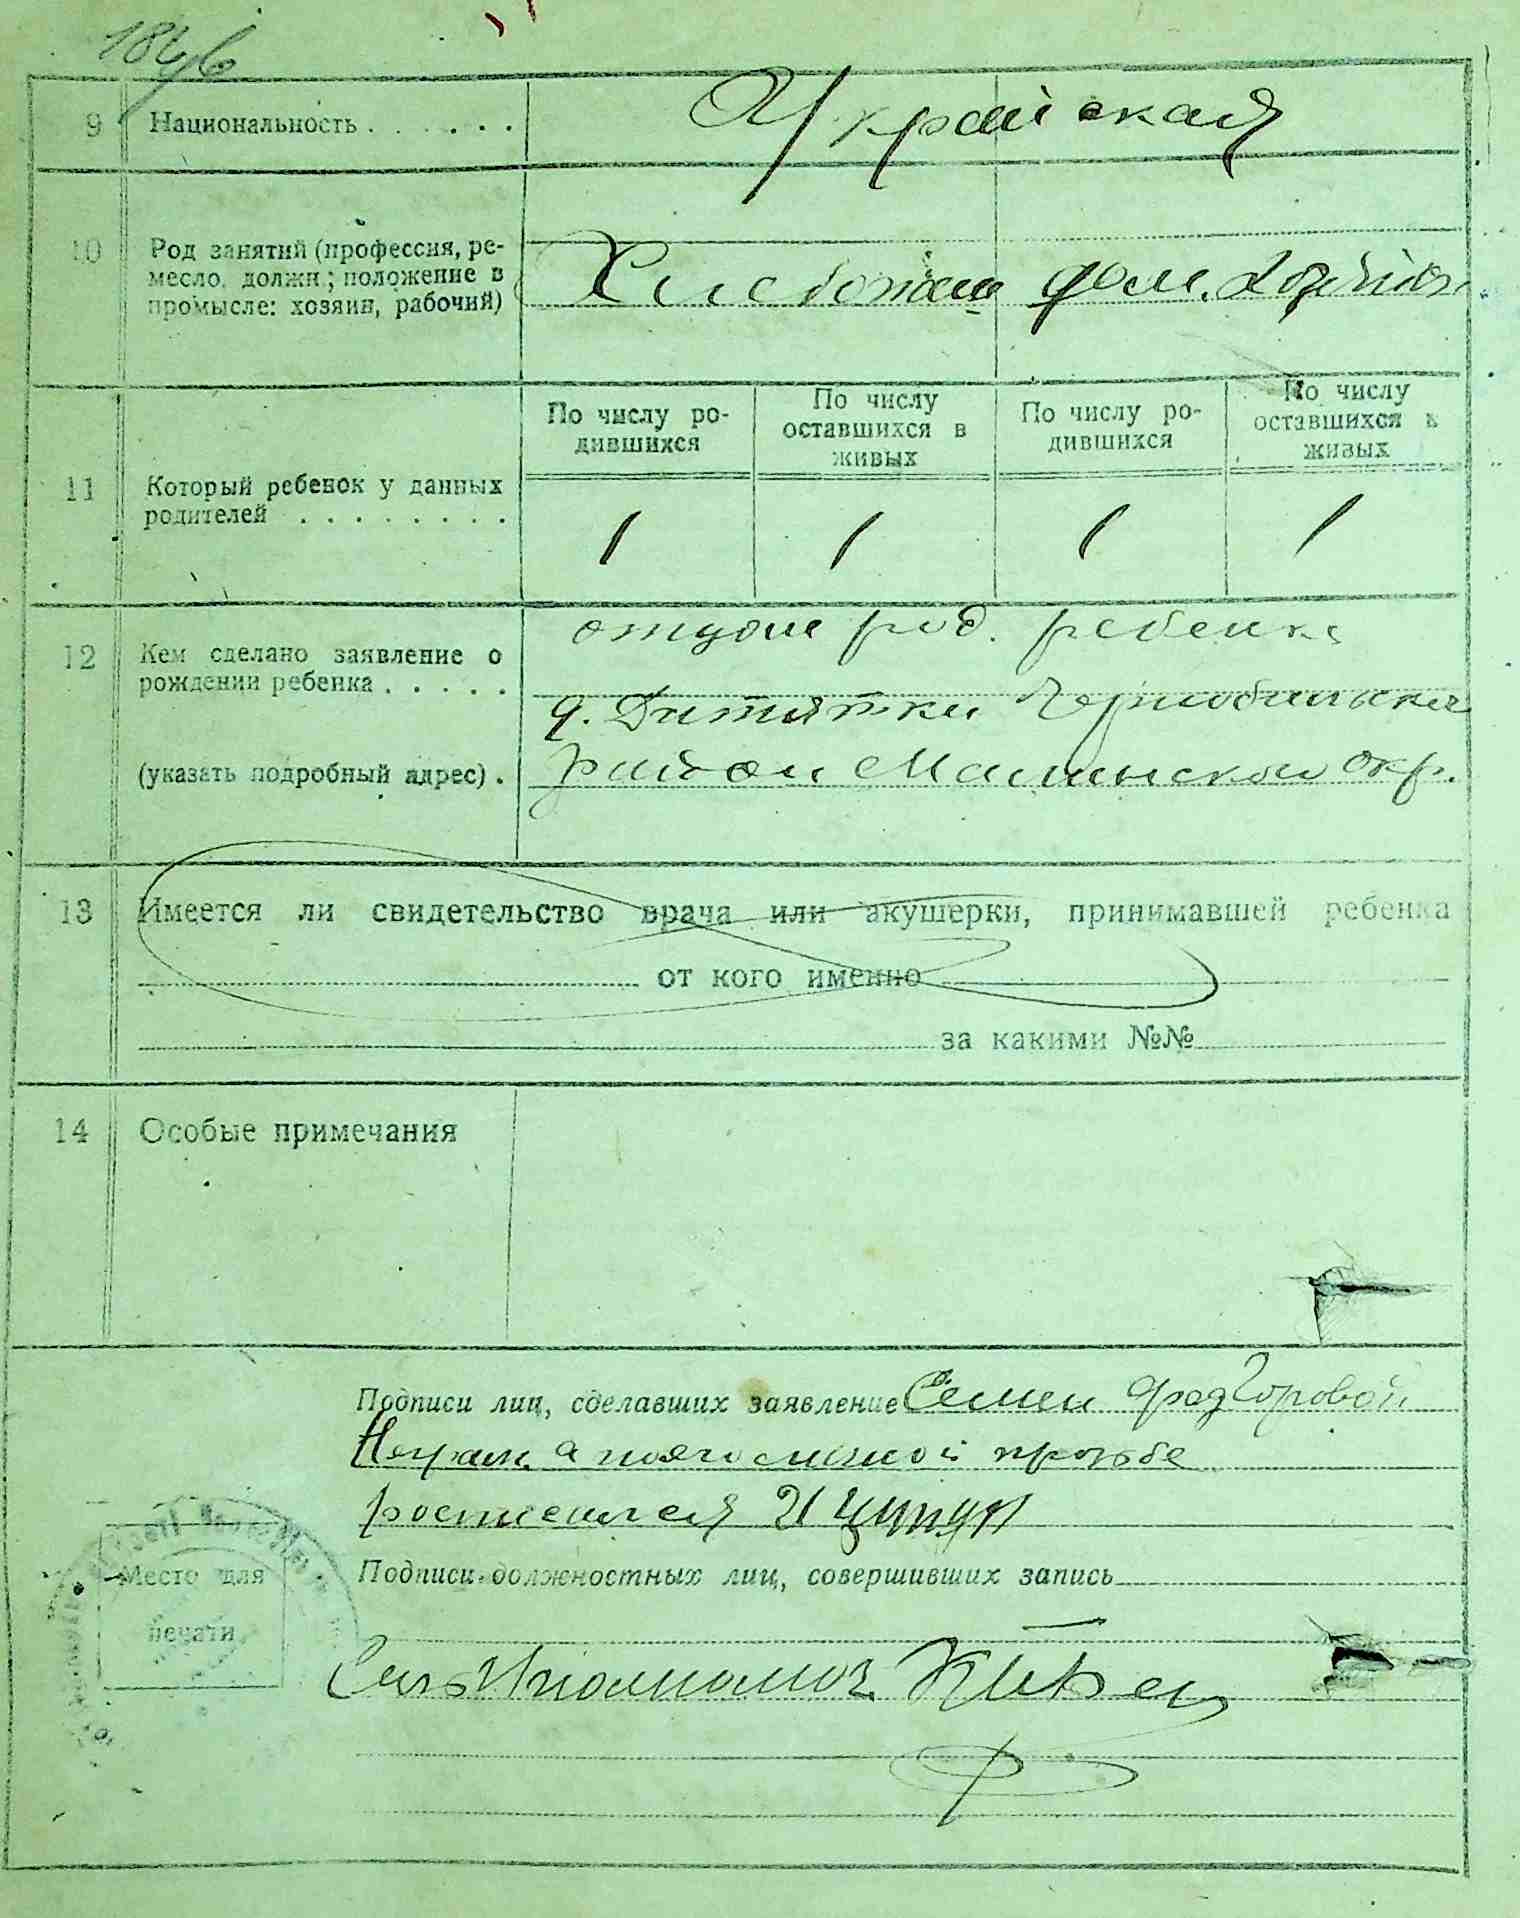 9 Национальность . . . . . . Украйская
10 Род занятий (профессия, ре-
месло, должн.; положение в
промысле: хозяин, рабочий)
Хлебопаш дом. хозяйка
11 Который ребенок у данных
родителей . . . . . . . .
По числу ро-
дившихся
По числу
оставшихся в
живых
По числу ро-
дившихся
По числу
оставшихся в
живых
1 1 1 1
12 Кем сделано заявление о
рождении ребенка . . . . .
(указать подробный адрес) .
отцом род. ребенка
д. Дитятки Чернобильска
район Малинской окр.
13 Имеется ли свидетельство врача или акушерки, принимавшей ребенка
от кого именно
за какими №№
14 Особые примечания
Подписи лиц, сделавших заявление Семен Фед Горовой
Неграм. а по его личной прозьбе
росписался
Место для
печати
Подписи должностных лиц, совершивших запись